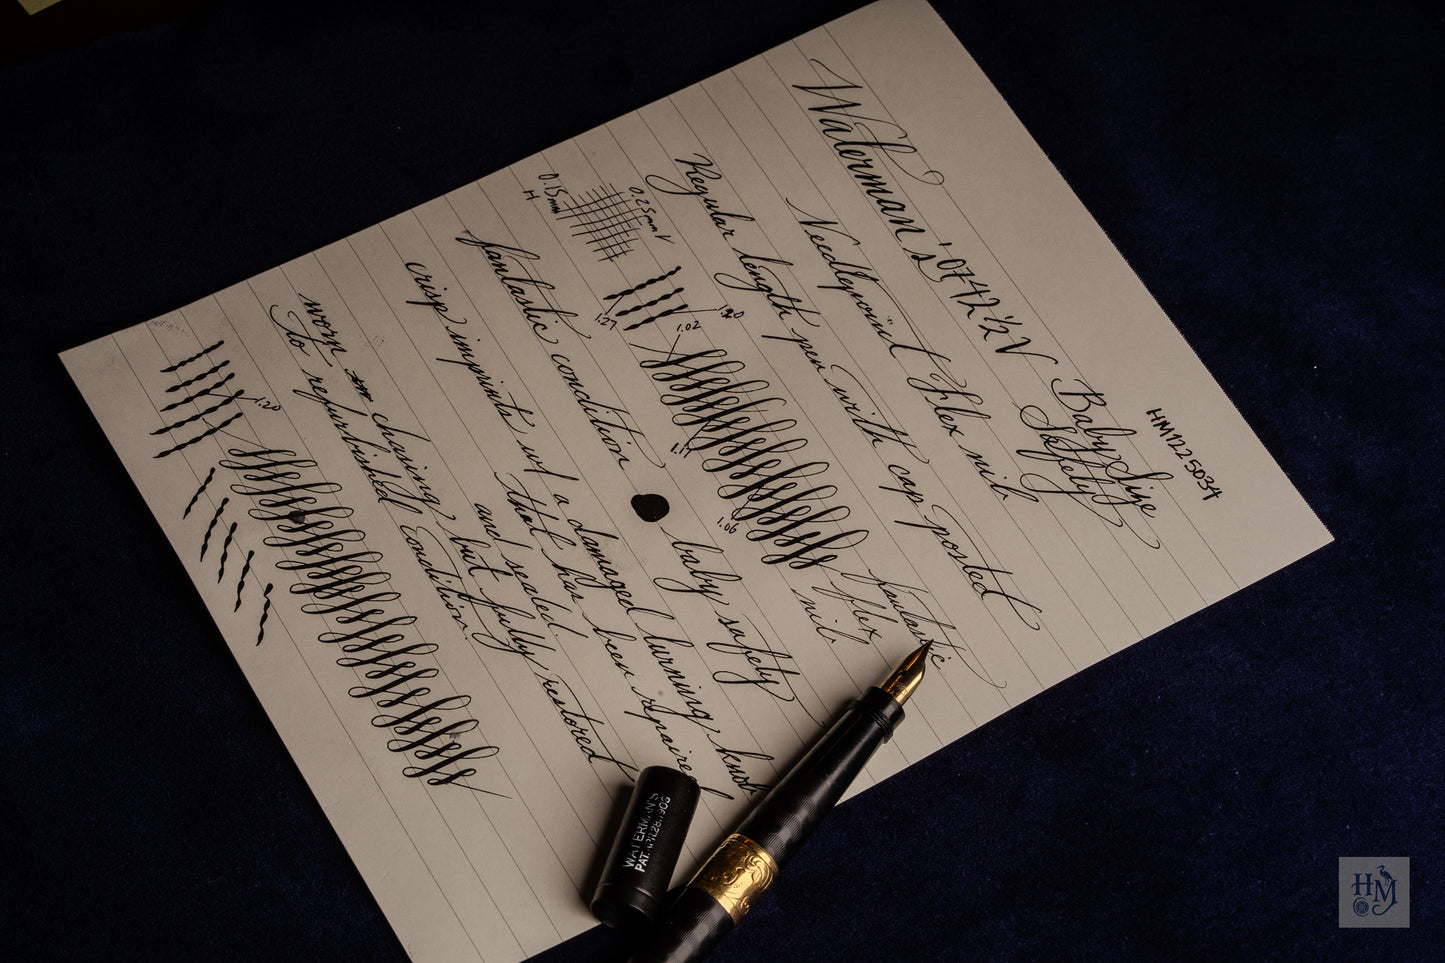 HM1225034
Waterman's 0742½ V Baby Size
Safety
Needlepoint Flex nib
Regular length pen with cap posted
0.25mm V
0.15mm
H
1.20
1.27
1.02
1.11
1.06
fantastic
flex
nib
fantastic condition baby safety
crisp imprints w/ a damaged turning knob
that has been repaired
and sealed.
worn chasing but fully restored
to refurbished condition.
1.20
WATERMAN'S
PAT. 1905
HM